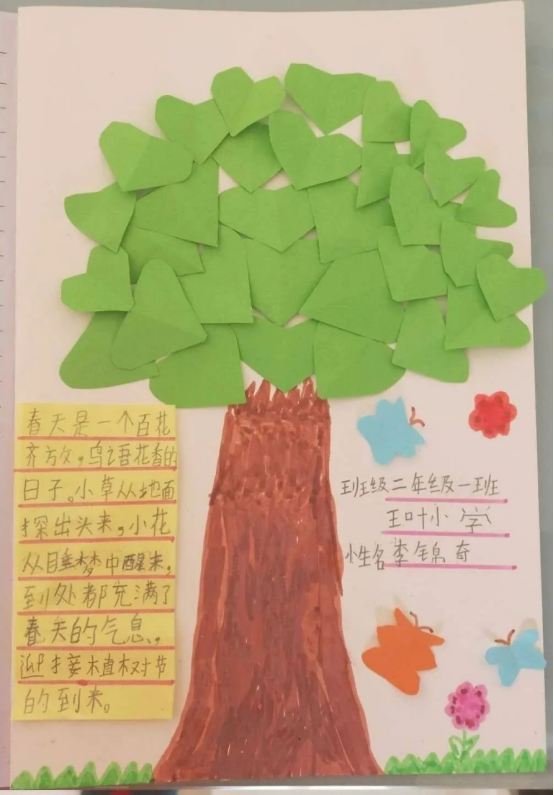 春天是一个百花
齐放,鸟语花香的
日子。小草从地面
探出头来,小花
从睡梦中醒来,
到处都充满了
春天的气息,
迎接植树节
的到来。
班级二年级一班
王叶小学
姓名李锦奇